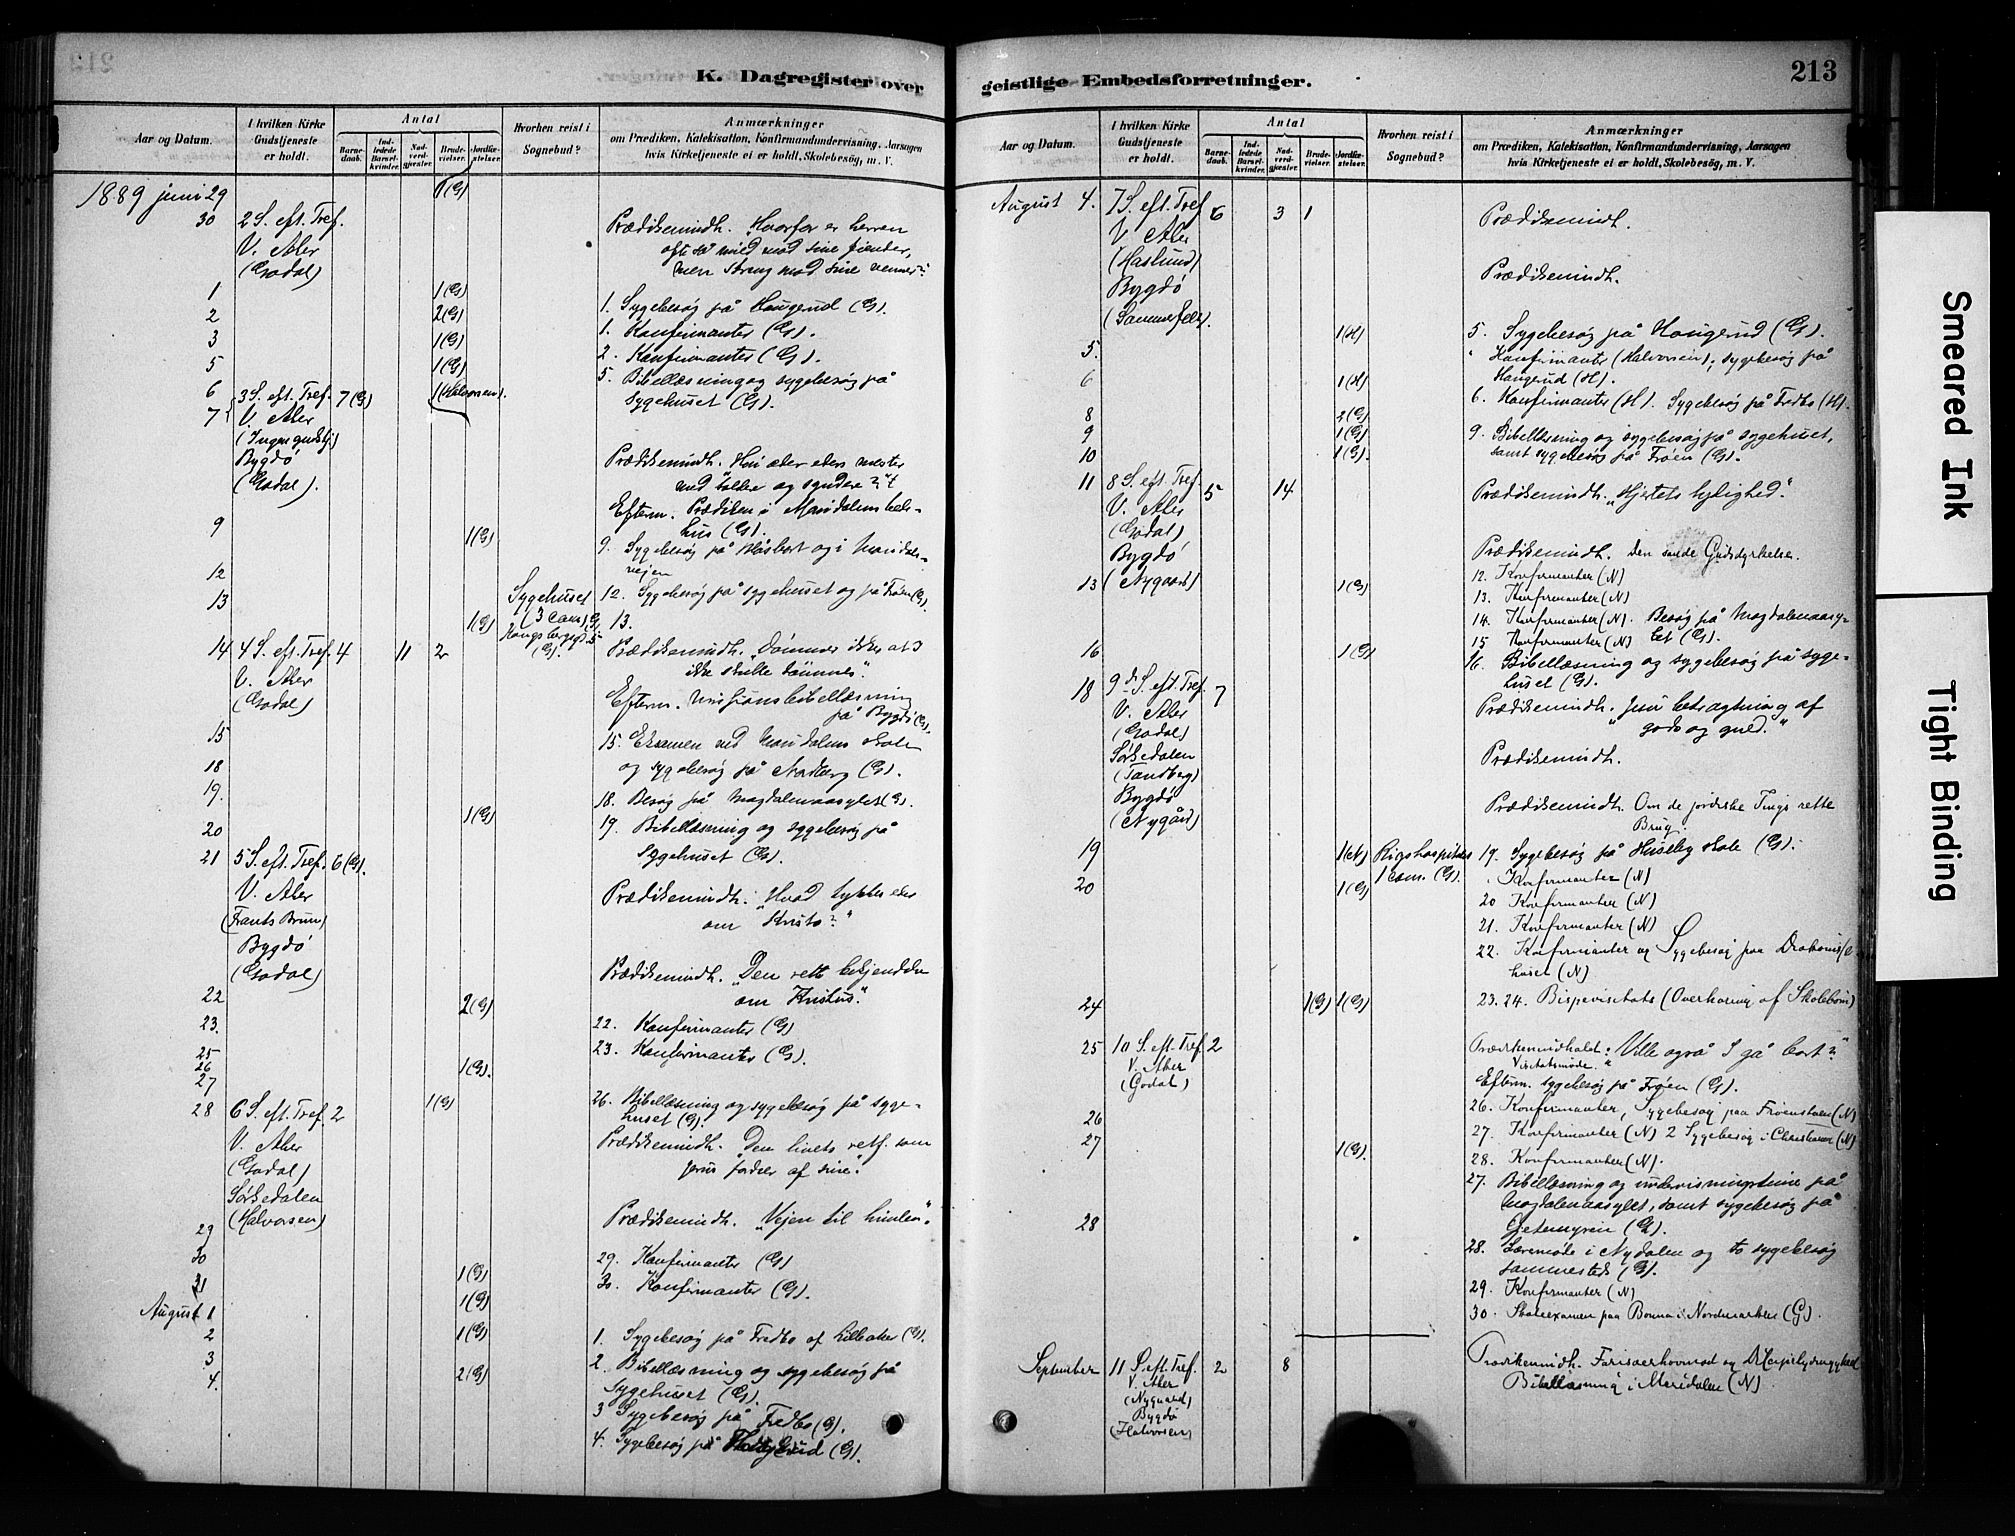 K. Dagregister over
Aar og Datum.
I hvilken Kirke Gudstjeneste er holdt.
Antal
Barnedaab.
Indledede Barselkvinder.
Nadverdgjæster.
Brudevielser.
Jordfæstelser.
Hvorhen reist i Sognebud?
Anmærkninger
om Prædiken, Katekisation, Konfirmandundervisning, Aarsagen
hvis Kirketjeneste ei er holdt, Skolebesög, m. V.
1889 juni 29 1(G)
30 2 S. eft. Tref. Prædikeindh. „Hvorfor er herren
V. Aker ofte så mild mod sine fiender,
(Godal) men streng mod sine venner?
1 1(G)
1. Sygebesøg på Haugerud (G).
2 2(G)
1. Konfirmanter (G).
3 1(G)
2. Konfirmanter (G).
5 1(G)
5. Bibellæsning og sygebesøg på
sygehuset (G).
6 1(Halvorsen).
7 3 S. eft. Tref. 7(G)
V. Aker
(Ingen gudstj)
Bygdö Prædikeindh.
(Godal). med toldere og syndere?"
Efterm. Prædiken i Maridalens bede-
hus (G).
9 1(G)
9. Sygebesøg på Blåsbort og i Maridals-
vejen
12 Sygehuset 12. Sygebesøg på sygehuset og på Frøen (G).
13 1(G) (3 com) (G) 13.
14 4 S. eft. Tref. 4 11 2 (G). Prædikeindh. „Dømmer ikke at I
V. Aker ikke skulle dømmes".
(Godal) Efterm. Missionsbibellæsning
på Bygdö (G).
15 15. Eksamen ved Maridalens skole
og sygebesøg på (G).
18 18. Besøg på Magdalenaasylet (G).
19. 1(G) 19. Bibellæsning og sygebesøg på
Sygehuset (G).
20
21 5 S. eft. Tref. 6 (G).
V. Aker Prædikeindh. „Hvad tykkes eder
(Frants Bruun) om Kristo?"
Bygdö
(Godal) Prædikeindh. „Den rette bekjendelse
om Kristus".
22 2(G)
22. Konfirmanter (G)
23. 23. Konfirmanter (G).
25
26 1(G).
27
28 6 S. eft. Tref. 2 1(G) 26. Bibellæsning og sygebesøg på syge-
huset (G).
V. Aker Prædikeindh. „Den livets retf. som
(Godal) Jesus fordrer af sine".
Sörkedalen
(Halvorsen) Prædikeindh. „Vejen til himlen".
29
29. Konfirmanter (G)
30
30. Konfirmanter (G).
31 1(G)
August 1 1(G)
2 1(G) 1. Sygebesøg på Fredbo af Lilleaker (G).
3 2. Bibellæsning og sygebesøg på
4. 2(G) Sygehuset (G).
3 Sygebesøg på Fredbo (G).
4. Sygebesøg på (G).
geistlige Embedsforretninger.
213
Aar og Datum.
I hvilken Kirke Gudstjeneste er holdt.
Antal
Barnedaab.
Indledede Barselkvinder.
Nadverdgjæster.
Brudevielser.
Jordfæstelser.
Hvorhen reist i Sognebud?
Anmærkninger
om Prædiken, Katekisation, Konfirmandundervisning, Aarsagen
hvis Kirketjeneste ei er holdt, Skolebesög, m. V.
August 4. 7 S. eft. Tref. 6 3 1 Prædikeindh.
V. Aker
(Haslund) Prædikeindh.
Bygdö
(Sommerfelt).
5. 1(H) 5. Sygebesøg på Haugerud (G).
" Konfirmanter (Halvorsen); sygebesøg på
Haugerud (H).
6 1(H) 6. Konfirmanter (H). Sygebesøg på Fredbo (H).
8 2(G)
9 1(G) 9. Bibellæsning og sygebesøg på sygehuset,
10 1(G). samt sygebesøg på Frøen (G).
11 8 S. eft. Tref. 5 14 Prædikeindh. „Hjertets hellighed".
V. Aker
(Godal)
Bygdö Prædikeindh. Den sande Gudsdyrkelse.
(Nygaard) 12. Konfirmanter (N)
13 1(G) 13. Konfirmanter (N)
14. Konfirmanter (N). Besøg på Magdalenaasy-
let (G).
15 Konfirmanter (N)
16 1(G) 16. Bibellæsning og sygebesøg på syge-
huset (G).
18 9de S. eft. Tref. 7
V. Aker Prædikeindh. Jesu betragtning af
(Godal) gods og guld."
Sörkedalen
(Tandberg) Prædikeindh.
Bygdö
(Nygård) Prædikeindh. Om de jordiske Tings rette
Brug.
19 1(N) Rigshospitalet 19. Sygebesøg på Huseby skole (G).
1 com. (G). " Konfirmanter (N)
20 1(G) 20 Konfirmanter (N)
21. Konfirmanter (N)
22. Konfirmanter og Sygebesøg paa Diakonisse-
huset (N)
24 1(G) 1(G) 23. 24. Bispevisitats (Overhøring af Skolebørn)
25 10 S. eft. Tref. 2 Prædikenindhold: „Ville også I gå bort?"
V. Aker Visitatsmøde.
(Godal) Efterm. sygebesøg på Frøen (G).
26 26. Konfirmanter, Sygebesøg paa (N)
27 1(G). 27. Konfirmanter (N) 2 Sygebesøg i Christiania (N)
28. Konfirmanter (N).
27. Bibellæsning og undervisningstime på
Magdalenaasylet, samt sygebesøg på
28 Gjetemyren (G).
28. Læremøde i Nydalen og to sygebesøg
sammesteds (G).
29. Konfirmanter (N)
30. Skoleexamen paa Bonna i Nordmarken (G).
September 11 S. eft. Tref. 2 8 Prædikenindh. Farisæerhovmod og
V. Aker Bibellæsning i Maridalen (N)
(Nygaard)
Bygdö
(Halvorsen)
Smeared Ink
Tight Binding